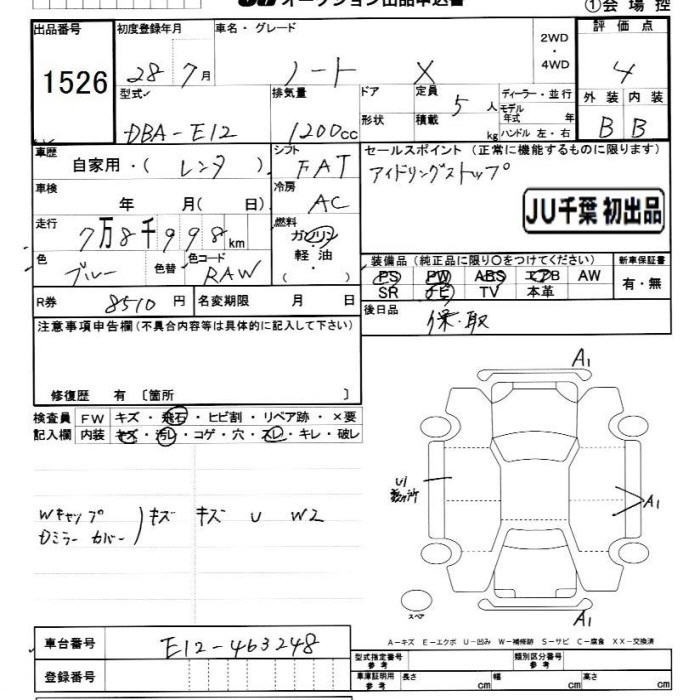 オークション出品申込書
①会場控
出品番号 初度登録年月 車名・グレード 2WD・4WD 評価点
1526 28 7月 ノート X 4
型式 排気量 ドア 定員 5人 ディーラー・並行 外装 内装
モデル年式 年
DBA-E12 1200cc 形状 積載 kg ハンドル 左・右 B B
車歴 自家用・( レンタ ) シフト FAT セールスポイント (正常に機能するものに限ります)
アイドリングストップ
車検 年 月( 日) 冷房 AC
JU千葉 初出品
走行 7万8千998km 燃料 ガソリン・軽油・( )
色 ブルー 色替 色コード RAW
装備品 (純正品に限り○をつけてください) 新車保証書
PS PW ABS エアB AW 有・無
SR ナビ TV 本革
R券 8510円 名変期限 月 日
後日品 保・取
注意事項申告欄(不具合内容等は具体的に記入して下さい)
修復歴 有 〔箇所 〕
検査員記入欄 FW キズ・飛石・ヒビ割・リペア跡・×要
内装 キズ・汚レ・コゲ・穴・スレ・キレ・破レ
A1
U1
A1
Wキャップ
Dミラーカバー )キズ キズ U W2
スペア
A1
A-キズ E-エクボ U-凹み W-補修跡 S-サビ C-腐食 XX-交換済
車台番号 E12-463248
登録番号
型式指定番号 参考 類別区分番号 参考
車庫証明用 参考 長さ cm 幅 cm 高さ cm